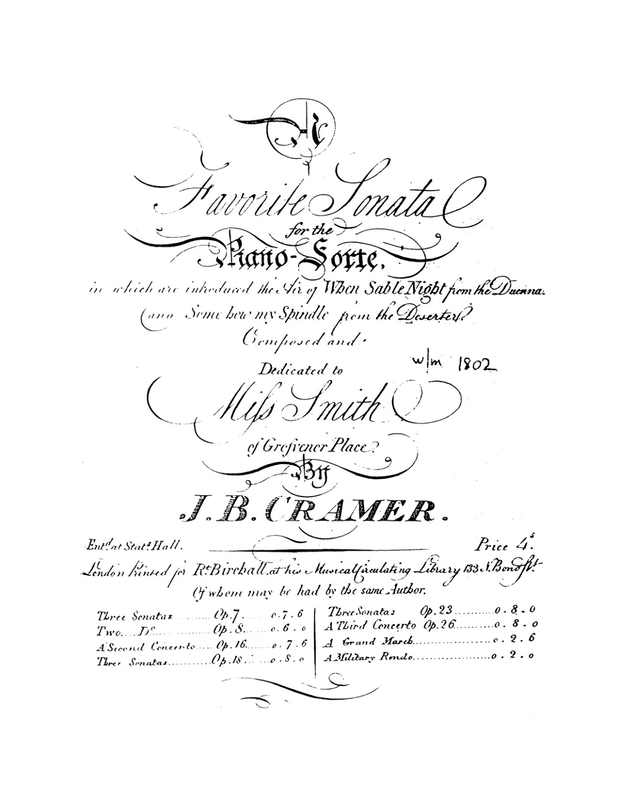 A
Favorite Sonata
for the
Piano-Forte,
in which are introduced the Air of When Sable Night from the Duenna.
(and Some how my Spindle from the Deserter.)
Composed and
Dedicated to
w/m 1802
Miſs Smith
of Groſvenor Place.
By
J. B. CRAMER.
Ent.d at Stat.s Hall. Price 4.s
London Printed for R.t Birchall, at his Musical Circulating Library 133 N. Bond St.
Of whom may be had by the same Author.
Three Sonatas ...... Op. 7 ..... 0.7.6
Two .... D.o ........ Op. 8 .... 0.6.0
A Second Concerto .... Op. 16 .... 0.7.6
Three Sonatas .......... Op. 18 ... 0.8.0
Three Sonatas Op. 23 ........ 0.8.0
A Third Concerto Op. 26 ....... 0.8.0
A Grand March ............... 0.2.6
A Military Rondo ............... 0.2.0